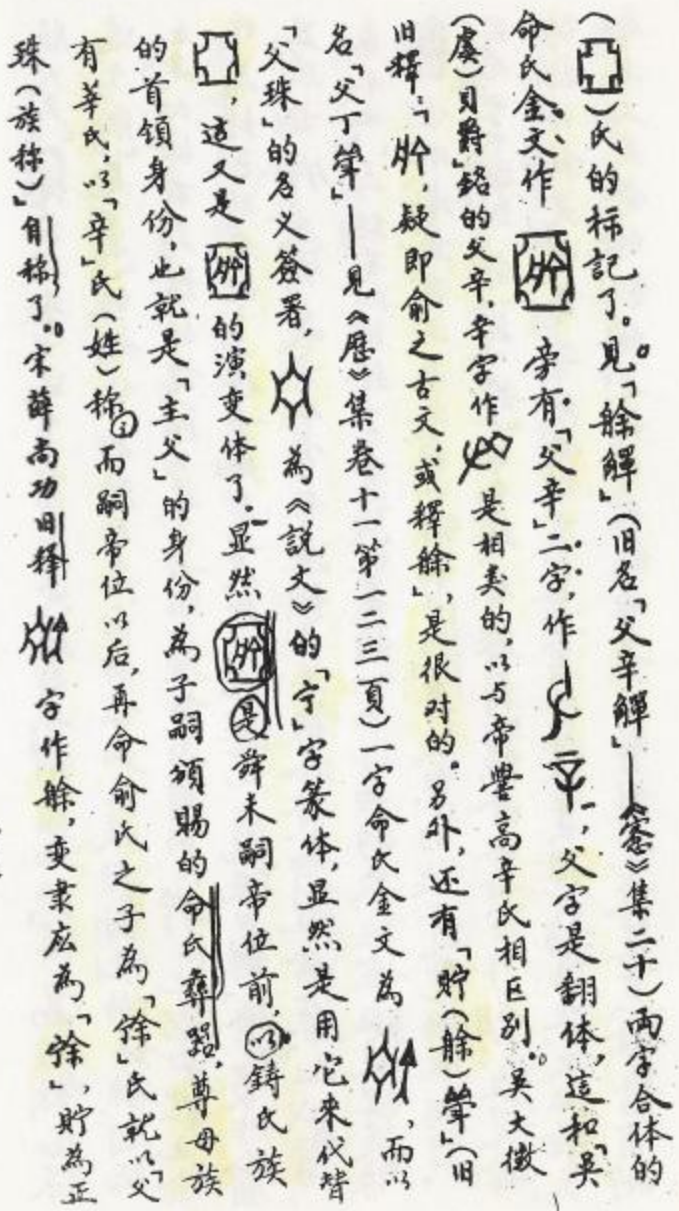 ()氏的标記了。見「艅觶」(旧名「父辛觶」——《愙》集二十)両字合体的
命氏金文作 旁有「父辛」二字,作 ,父字是翻体,這和「吴
(虞)貝爵」銘的父辛,辛字作 是相类的,以与帝嚳高辛氏相区别。吴大徵
旧釋:「 ,疑即俞之古文,或釋艅」,是很对的。另外,还有「貯(艅)斝」(旧
名「父丁斝」——見《歷》集卷十一第一二三頁)一字命氏金文為 ,而以
「父珠」的名义簽署, 為《説文》的「宁」字篆体,显然是用它來代替
,這又是 的演变体了。显然 是舜未嗣帝位前,以鋳氏族
的首領身份,也就是「主父」的身份,為子嗣頒賜的命氏彝器,尊母族
有莘氏,以「辛」氏(姓)称,而嗣帝位以后,再命俞氏之子為「馀」氏就以「父
珠(族称)」自称了。宋薛尚功旧釋 字作艅,变隶应為「馀」,貯為正